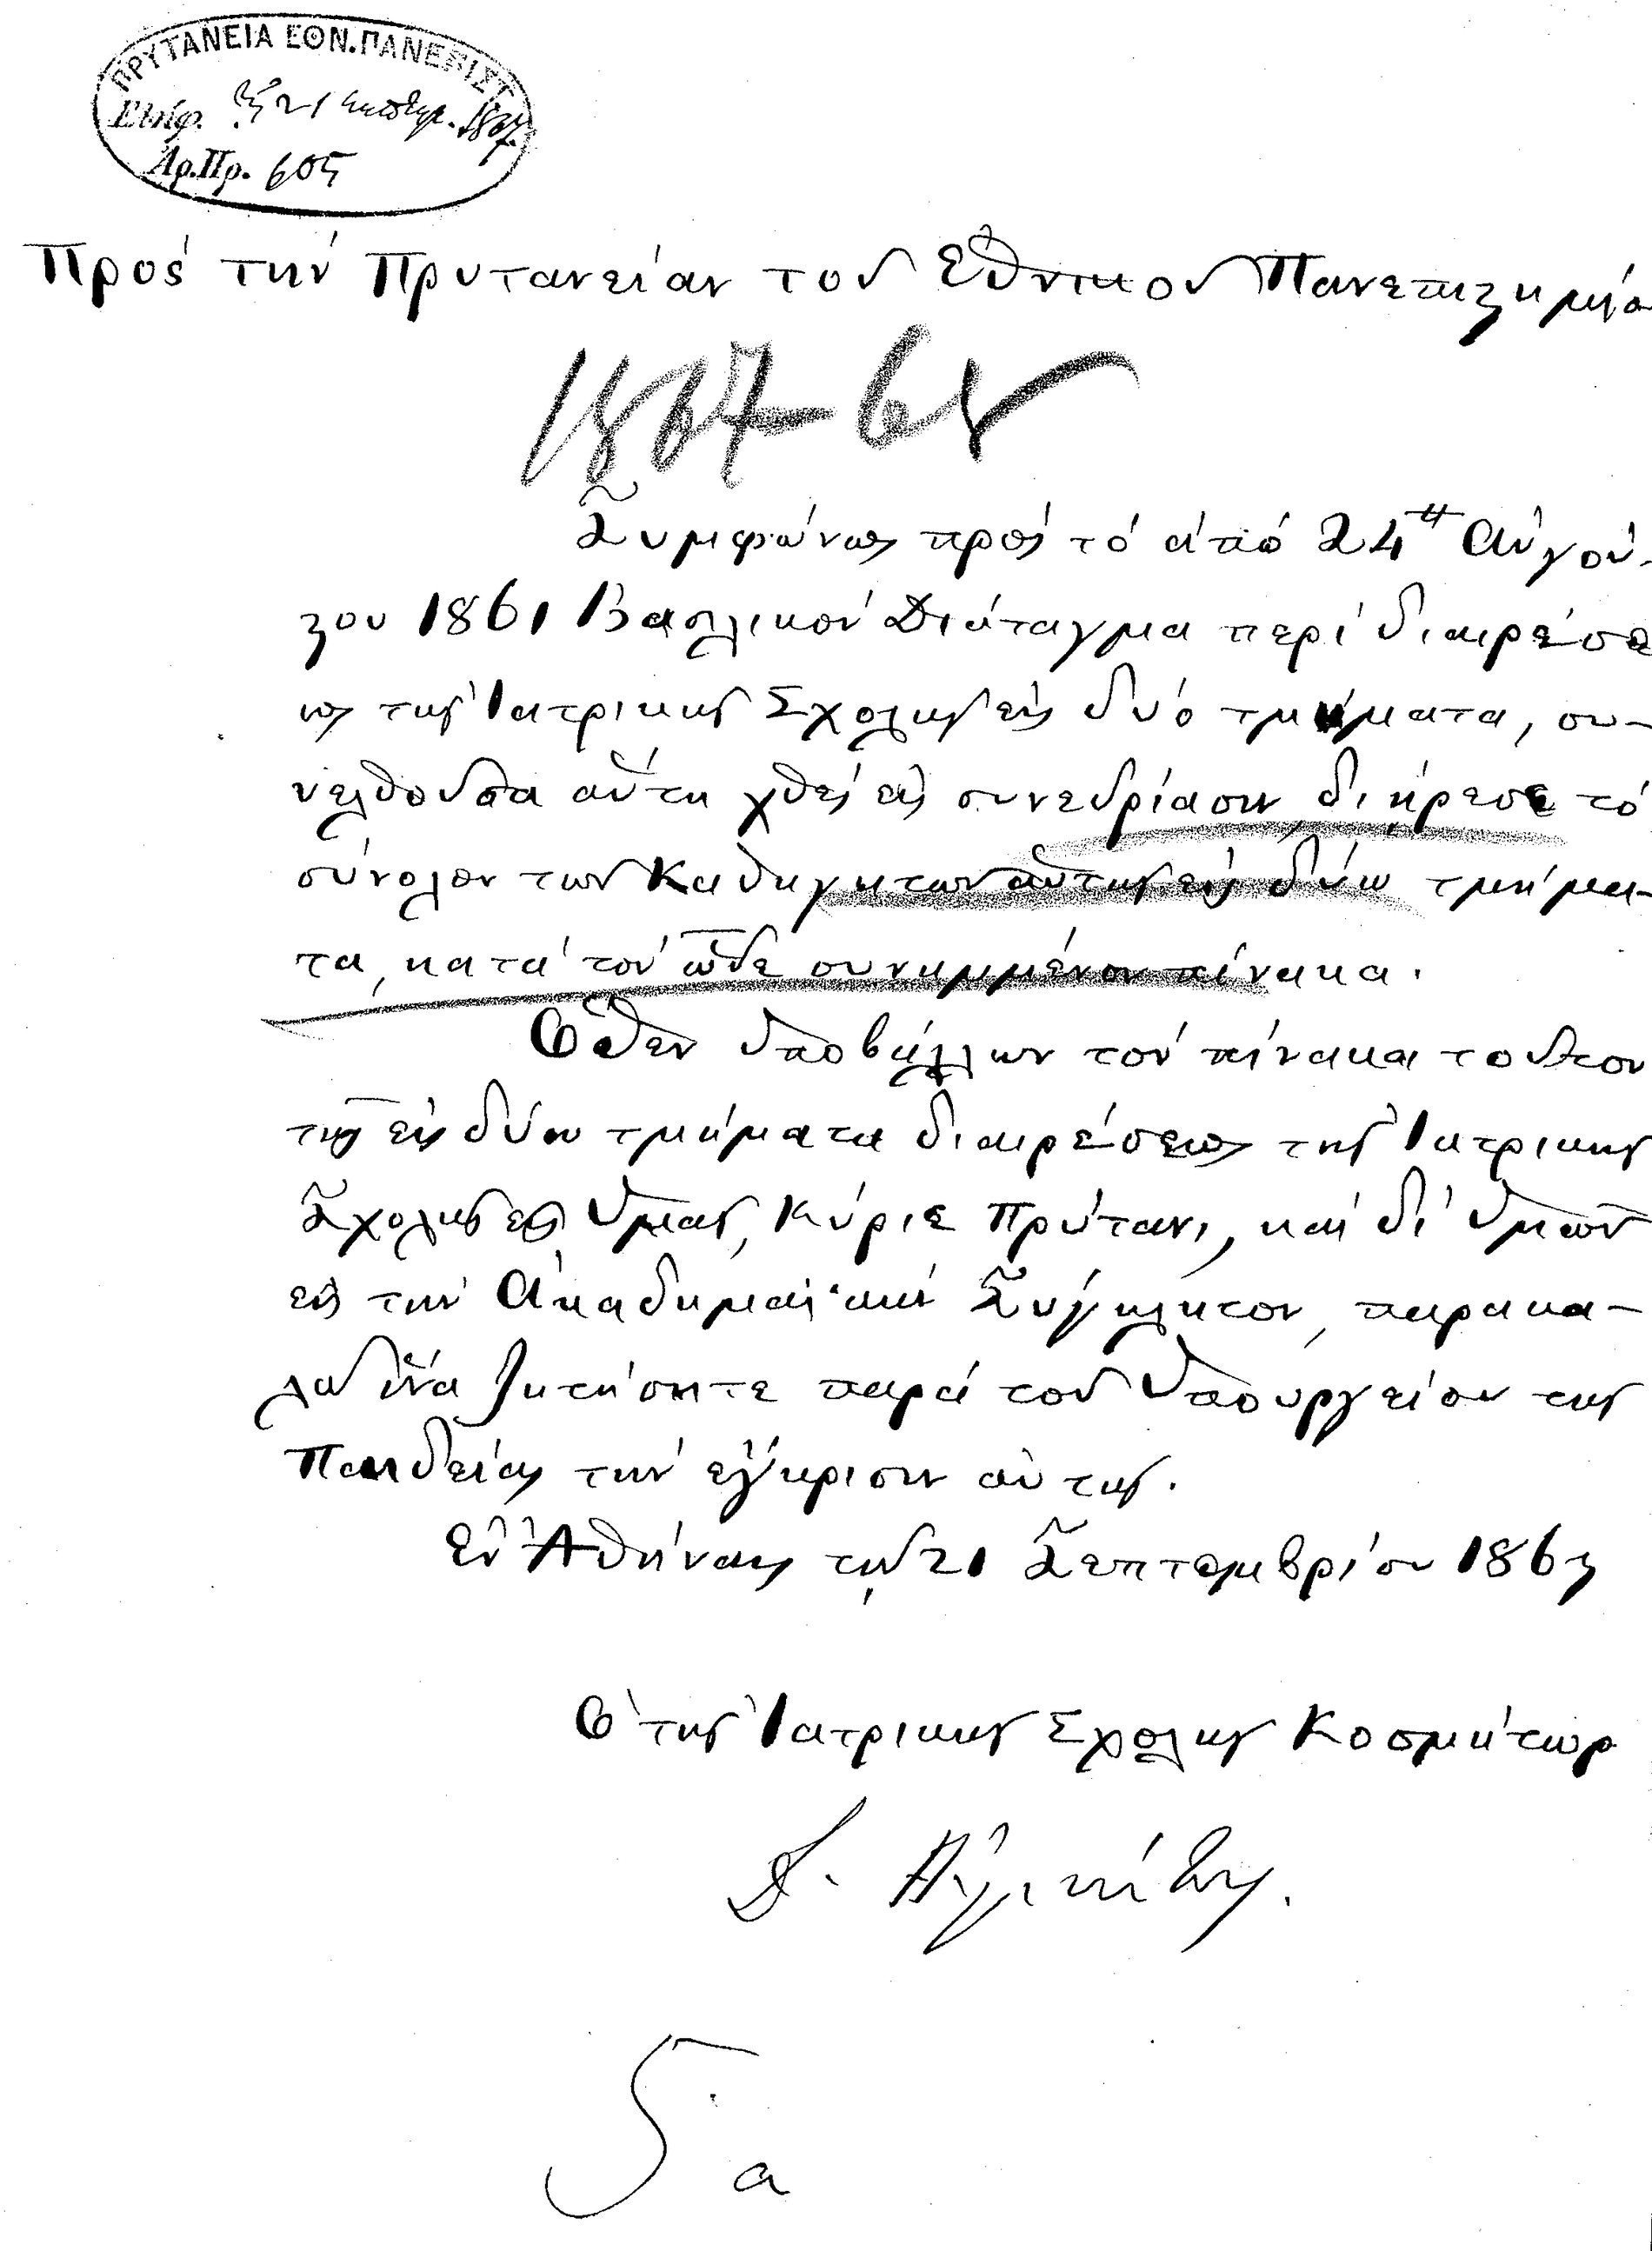 ΠΡΥΤΑΝΕΙΑ ΕΘΝ. ΠΑΝΕΠΙΣΤ.
Ελήφ. τῇ 21 Σεπτεμβρ. 1867.
Αρ. Πρ. 605
Πρὸς τὴν Πρυτανείαν τοῦ Ἐθνικοῦ Πανεπιστημίο
1867-68
Συμφώνως πρὸς τὸ ἀπὸ 24ης Αὐγού-
στου 1861 Βασιλικὸν Διάταγμα περὶ διαιρέσε
ως τῆς Ἰατρικῆς Σχολῆς εἰς δύο τμήματα, συ-
νελθοῦσα αὕτη χθὲς εἰς συνεδρίασιν, διῄρεσε τὸ
σύνολον τῶν Καθηγητῶν αὐτῆς εἰς δύω τμήμα-
τα, κατὰ τὸν ὧδε συνημμένον πίνακα.
Ὅθεν ὑποβάλλων τὸν πίνακα τοῦτον
τῆς εἰς δύω τμήματα διαιρέσεως τῆς Ἰατρικῆς
Σχολῆς εἰς Ὑμᾶς, Κύριε Πρύτανι, καὶ δι' Ὑμῶν
εἰς τὴν Ἀκαδημαϊκὴν Σύγκλητον, παρακα-
λῶ ἵνα ζητήσητε παρὰ τοῦ Ὑπουργείου τῆς
Παιδείας τὴν ἔγκρισιν αὐτῆς.
Ἐν Ἀθήναις τῇ 21 Σεπτεμβρίου 1867
Ὁ τῆς Ἰατρικῆς Σχολῆς Κοσμήτωρ
α